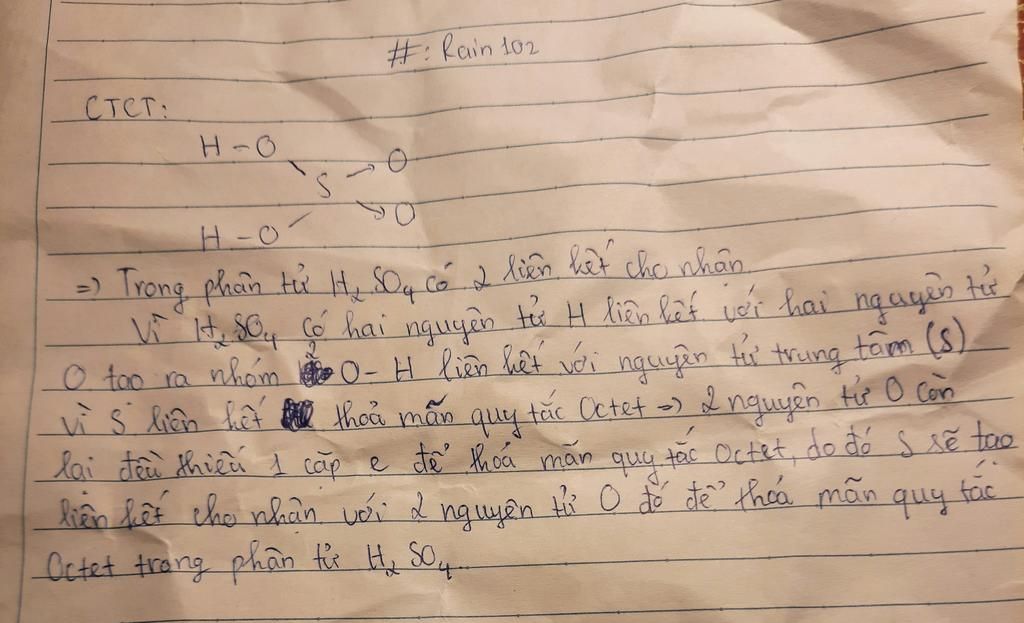 #: Rain 102
CTCT:
H - O
S → O
→ O
H - O
=> Trong phân tử H₂SO₄ có 2 liên kết cho nhân
Vì H₂SO₄ có hai nguyên tử H liên kết với hai nguyên tử
O tao ra nhóm 2 O - H liên kết với nguyên tử trung tâm (S)
vì S liên kết thoả mãn quy tắc Octet => 2 nguyên tử O còn
lại đều thiếu 1 cặp e để thoả mãn quy tắc Octet, do đó S sẽ tạo
liên kết cho nhân với 2 nguyên tử O đó để thoả mãn quy tắc
Octet trong phân tử H₂SO₄.